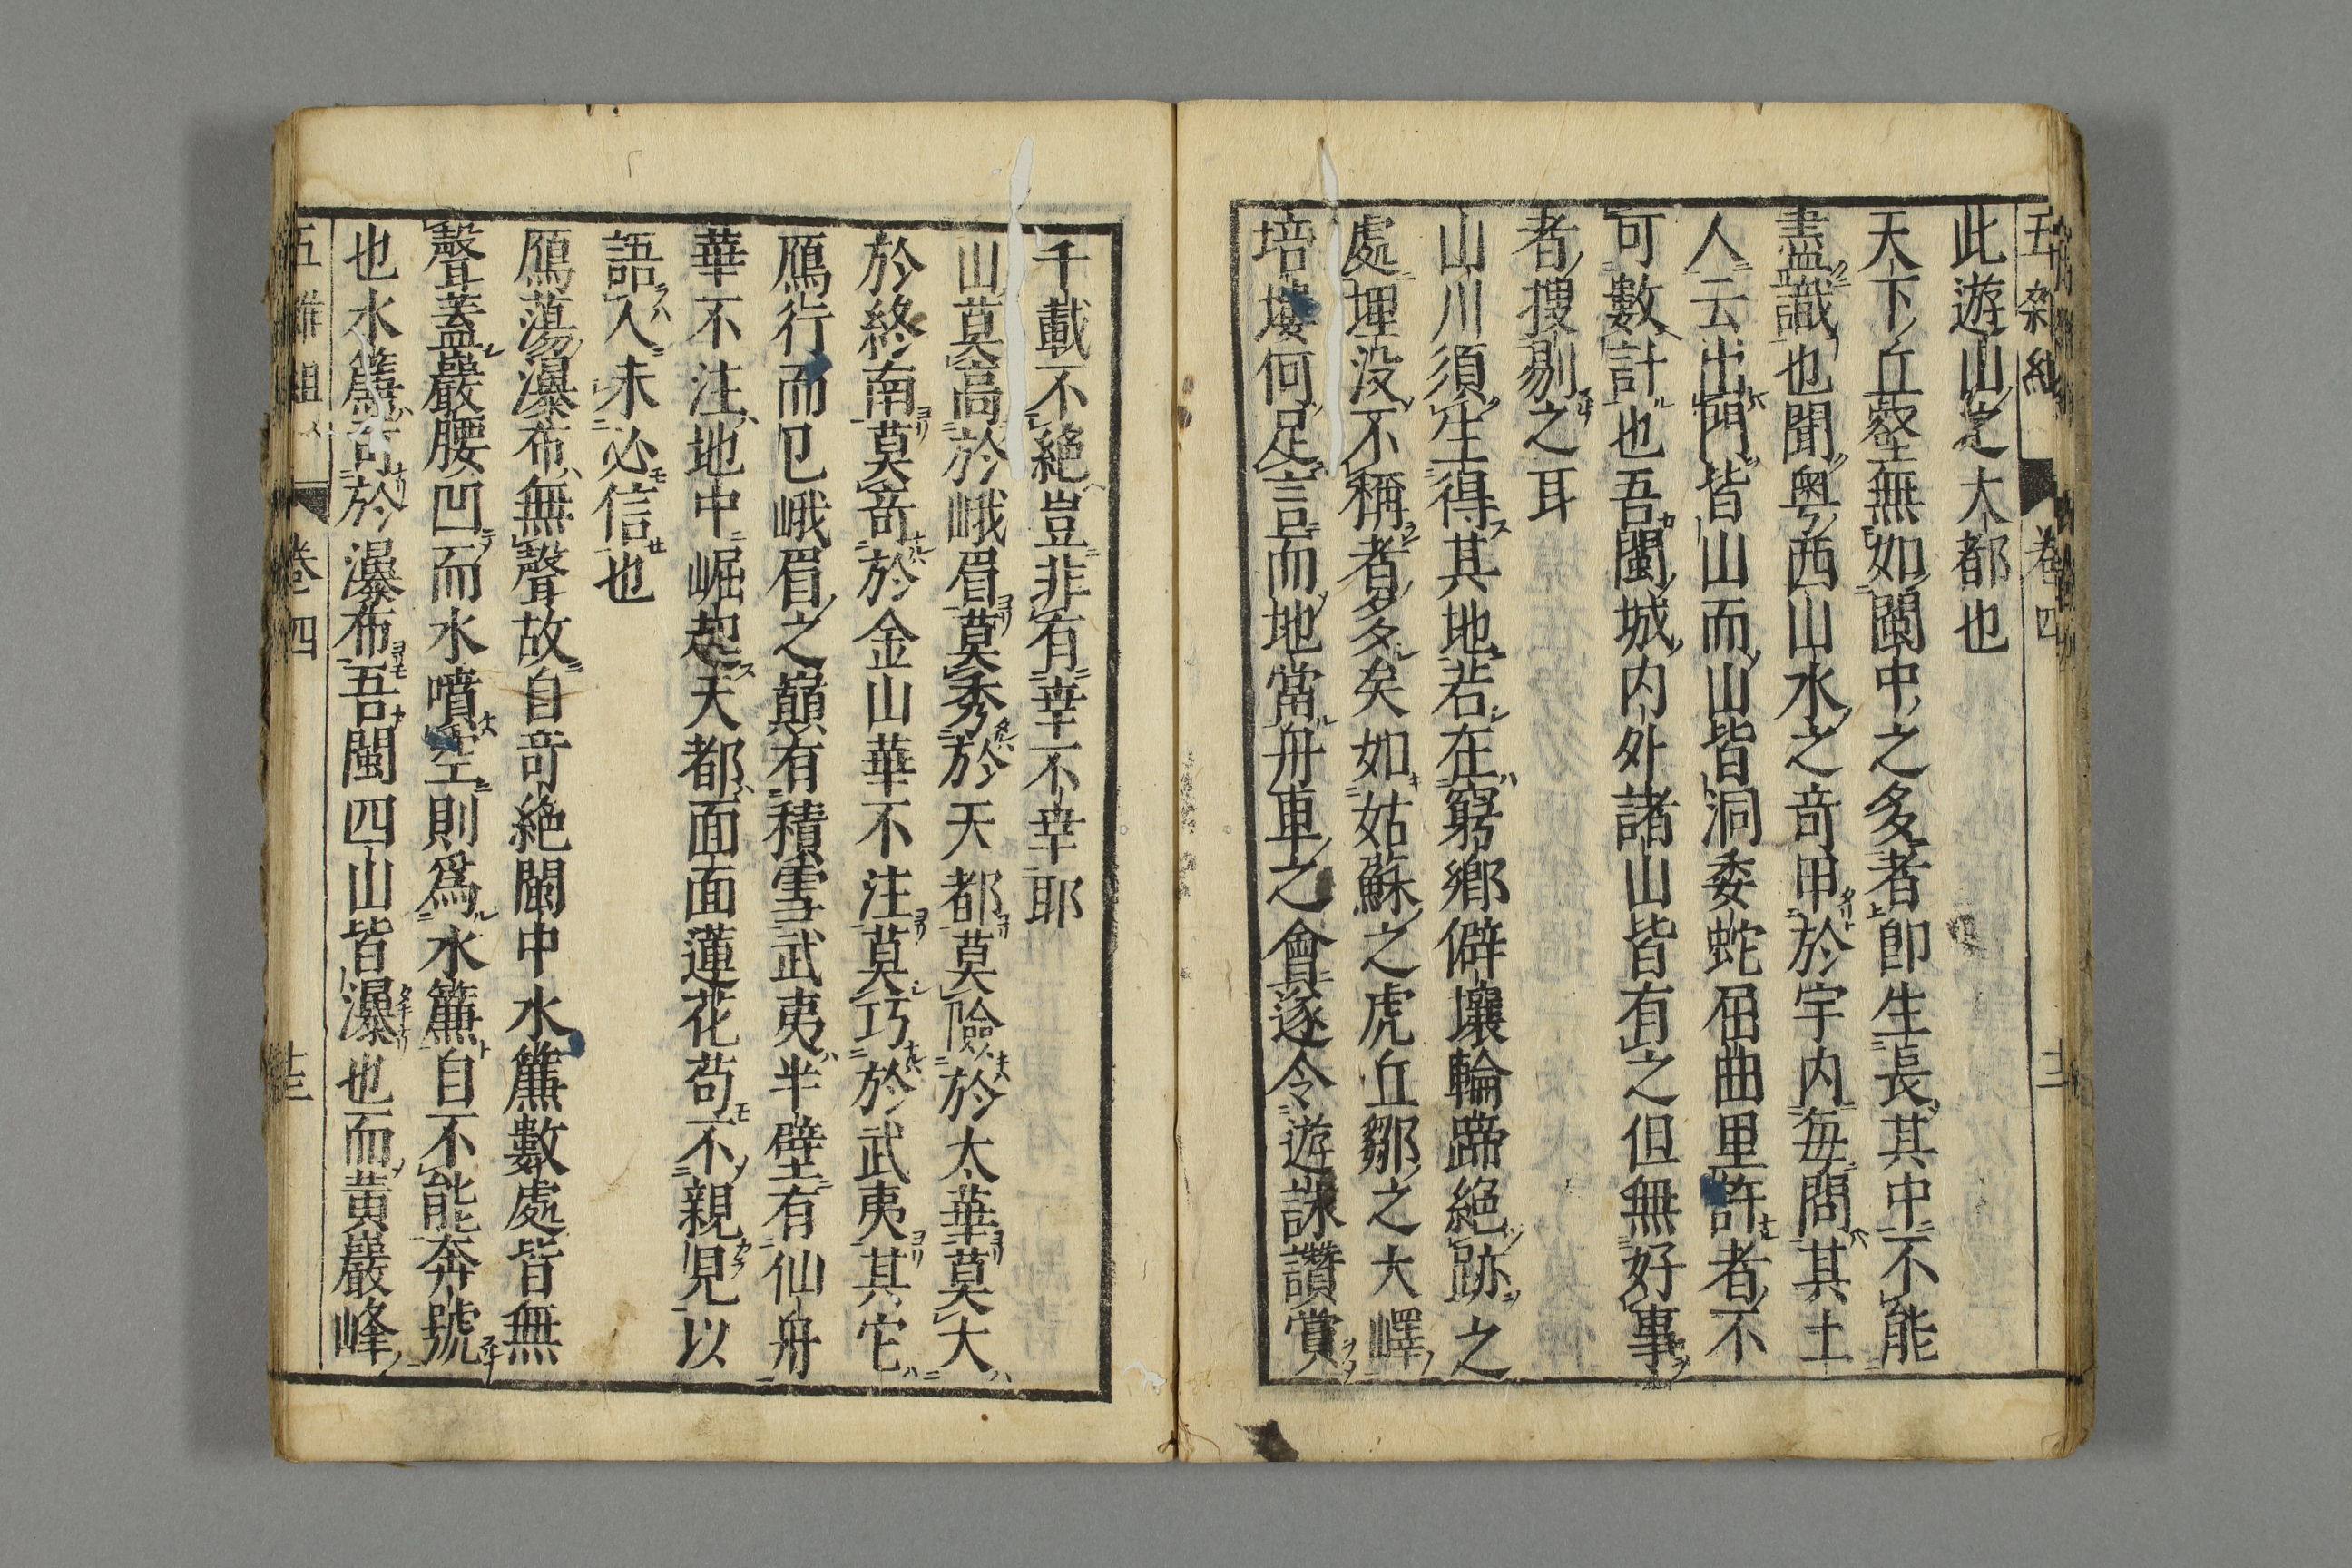 此遊山之大都也
天下丘壑無如閩中之多者即生長其中不能
盡識也聞粤西山水之竒甲於宇内毎問其土
人云出門皆山而山皆洞委蛇屈曲里許者不
可數計也吾閩城内外諸山皆有之但無好事
者搜剔之耳
山川須生得其地若在窮鄉僻壤輪蹄絶跡之
處埋没不稱者多矣如姑蘇之虎丘鄒之大嶧
培塿何足言而地當舟車之會遂令遊詠讚賞
千載不絶豈非有幸不幸耶
山莫高於峨眉莫秀於天都莫險於太華莫大
於終南莫竒於金山華不注莫巧於武夷其它
鴈行而已峨眉之巔有積雪武夷半壁有仙舟
華不注地中崛起天都面面蓮花苟不親見以
語人未必信也
鴈蕩瀑布無聲故自竒絶閩中水簾數處皆無
聲蓋巖腰凹而水噴空則爲水簾自不能奔號
也水簾竒於瀑布吾閩四山皆瀑也而黄巖峰
五雜組 卷四 十三